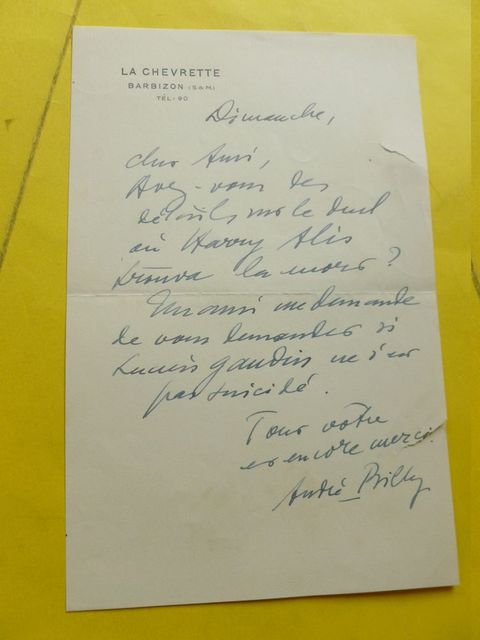 LA CHEVRETTE
BARBIZON (S & M)
TÉL: 90
Dimanche,
Cher Ami,
Avez-vous des
détails sur le duel
où Harry Alis
trouva la mort ?
Un ami me demande
de vous demander si
Lucien Gaudin ne s'est
pas suicidé.
Tout votre
et encore merci.
André Billy